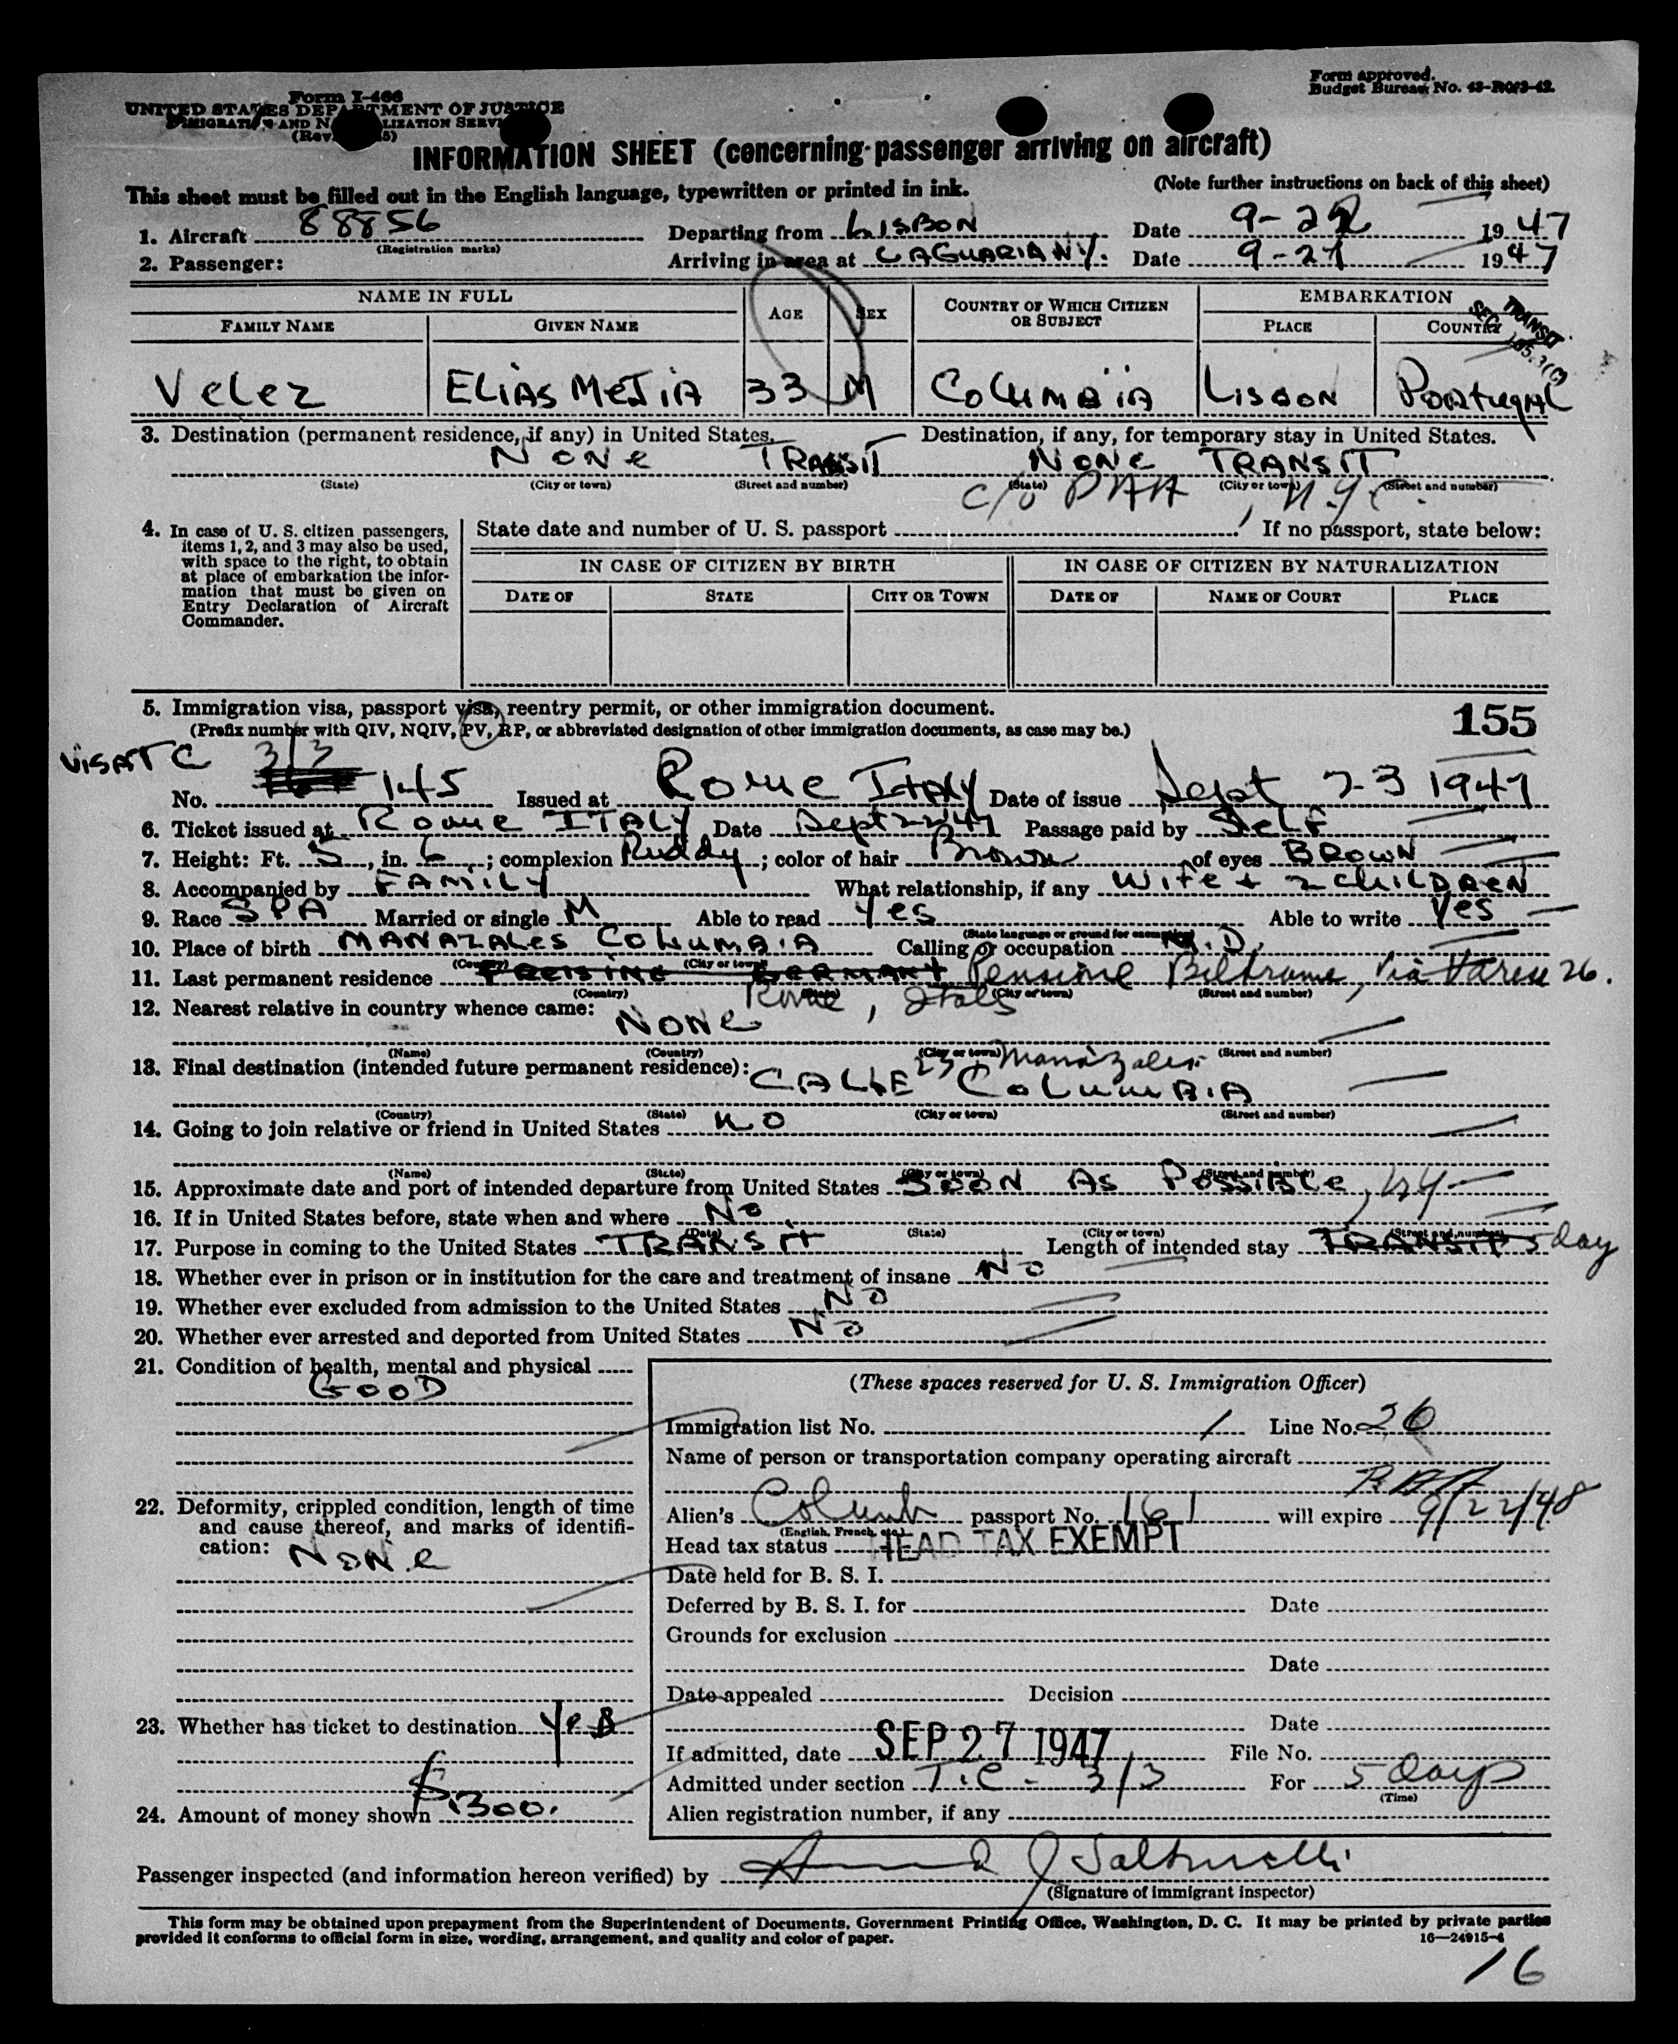 Form I-466
UNITED STATES DEPARTMENT OF JUSTICE
IMMIGRATION AND NATURALIZATION SERVICE
(Rev. 5)
Form approved.
Budget Bureau No. 43-R083-42.
INFORMATION SHEET (concerning passenger arriving on aircraft)
This sheet must be filled out in the English language, typewritten or printed in ink. (Note further instructions on back of this sheet)
1. Aircraft 88856 Departing from LISBON Date 9-22 1947
(Registration marks)
2. Passenger: Arriving in area at LAGUARIA N.Y. Date 9-27 1947
NAME IN FULL AGE SEX COUNTRY OF WHICH CITIZEN OR SUBJECT EMBARKATION
FAMILY NAME GIVEN NAME PLACE COUNTRY
TRANSIT
SEC.
Velez ELIAS MEJIA 33 M COLUMBIA LISBON PORTUGAL
3. Destination (permanent residence, if any) in United States. Destination, if any, for temporary stay in United States.
NONE TRANSIT NONE TRANSIT
(State) (City or town) (Street and number) (State) (City or town) (Street and number)
c/o PAA, N.Y.C.
4. In case of U. S. citizen passengers, items 1, 2, and 3 may also be used, with space to the right, to obtain at place of embarkation the information that must be given on Entry Declaration of Aircraft Commander.
State date and number of U. S. passport If no passport, state below:
IN CASE OF CITIZEN BY BIRTH IN CASE OF CITIZEN BY NATURALIZATION
DATE OF STATE CITY OR TOWN DATE OF NAME OF COURT PLACE
5. Immigration visa, passport visa, reentry permit, or other immigration document.
(Prefix number with QIV, NQIV, PV, RP, or abbreviated designation of other immigration documents, as case may be.)
155
VISA TC 3/3
No. 145 Issued at Rome Italy Date of issue Sept 23 1947
6. Ticket issued at Rome ITALY Date Sept 22 47 Passage paid by Self
7. Height: Ft. 5, in. 6; complexion Ruddy; color of hair Brown of eyes BROWN
8. Accompanied by FAMILY What relationship, if any Wife + 2 CHILDREN
9. Race SPA Married or single M Able to read Yes Able to write Yes
(State language or ground for exemption)
10. Place of birth MANAZALES COLUMBIA Calling or occupation M.D.
(Country) (City or town)
11. Last permanent residence FREISING GERMANY Pensione Beltrame, Via Varese 26.
(Country) (State) (City or town) (Street and number)
Rome, Italy
12. Nearest relative in country whence came: NONE
(Name) (Country) (City or town) (Street and number)
13. Final destination (intended future permanent residence): CALLE 23, Manizales COLUMBIA
(Country) (State) (City or town) (Street and number)
14. Going to join relative or friend in United States NO
(Name) (State) (City or town) (Street and number)
15. Approximate date and port of intended departure from United States SOON AS POSSIBLE, NY
16. If in United States before, state when and where NO
(Date) (State) (City or town) (Street and number)
17. Purpose in coming to the United States TRANSIT Length of intended stay TRANSIT 5 day
18. Whether ever in prison or in institution for the care and treatment of insane NO
19. Whether ever excluded from admission to the United States NO
20. Whether ever arrested and deported from United States NO
21. Condition of health, mental and physical
GOOD
22. Deformity, crippled condition, length of time and cause thereof, and marks of identification: NONE
23. Whether has ticket to destination Yes
24. Amount of money shown $1300.
(These spaces reserved for U. S. Immigration Officer)
Immigration list No. 1 Line No. 26
Name of person or transportation company operating aircraft
PAA
Alien's Columb passport No. 161 will expire 9/22/48
(English, French, etc.)
Head tax status HEAD TAX EXEMPT
Date held for B. S. I.
Deferred by B. S. I. for Date
Grounds for exclusion
Date
Date appealed Decision
Date
If admitted, date SEP 27 1947 File No.
Admitted under section T.C - 3/3 For 5 days
(Time)
Alien registration number, if any
Passenger inspected (and information hereon verified) by
(Signature of immigrant inspector)
This form may be obtained upon prepayment from the Superintendent of Documents, Government Printing Office, Washington, D. C. It may be printed by private parties
provided it conforms to official form in size, wording, arrangement, and quality and color of paper. 16—24915-4
16